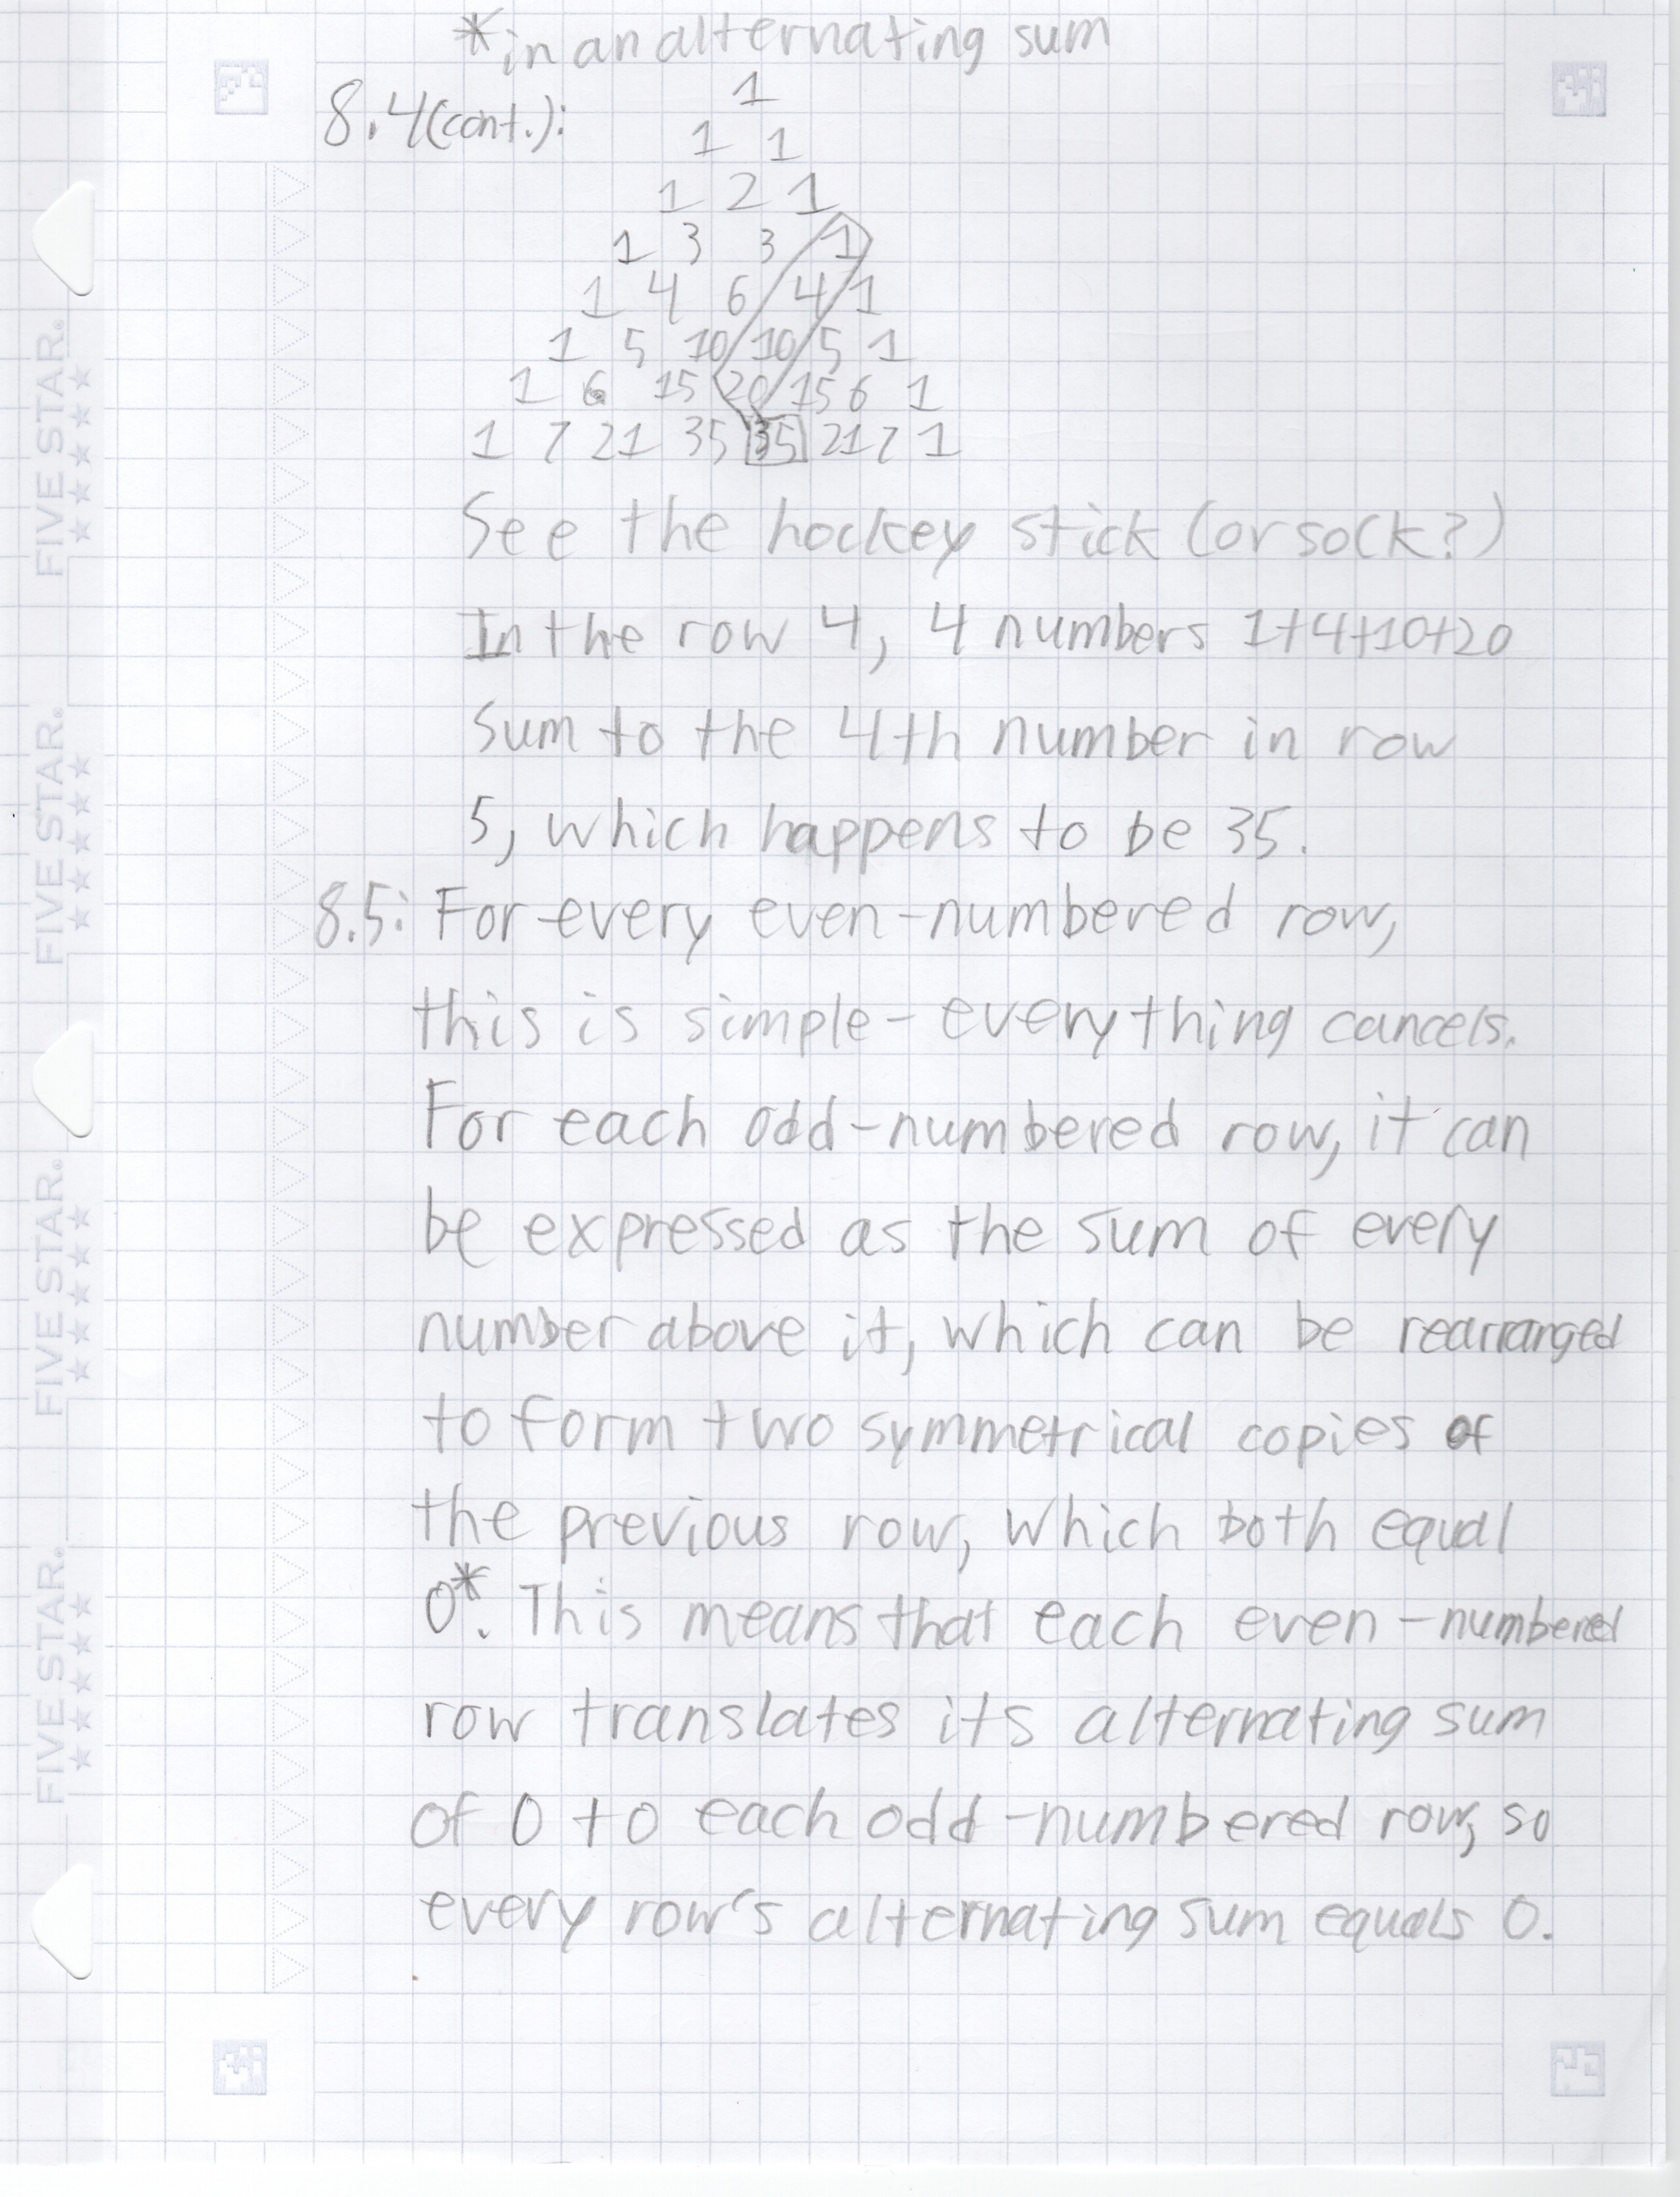 *in an alternating sum
8.4(cont.):
1
1 1
1 2 1
1 3 3 1
1 4 6 4 1
1 5 10 10 5 1
1 6 15 20 15 6 1
1 7 21 35 35 21 7 1
See the hockey stick (or sock?)
In the row 4, 4 numbers 1+4+10+20
sum to the 4th number in row
5, which happens to be 35.
8.5: For every even-numbered row,
this is simple- everything cancels.
For each odd-numbered row, it can
be expressed as the sum of every
number above it, which can be rearranged
to form two symmetrical copies of
the previous row, which both equal
0*. This means that each even-numbered
row translates its alternating sum
of 0 to each odd-numbered row, so
every row's alternating sum equals 0.
FIVE STAR.
FIVE STAR.
FIVE STAR.
FIVE STAR.